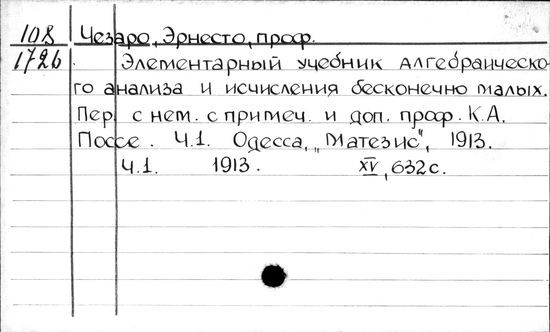 108 Чезаро, Эрнесто, проф.
1726 Элементарный учебник алгебраическо-
го анализа и исчисления бесконечно малых.
Пер. с нем. с примеч. и доп. проф. К.А.
Поссе. Ч.1. Одесса, "Матезис", 1913.
Ч.1. 1913. XV, 632 с.